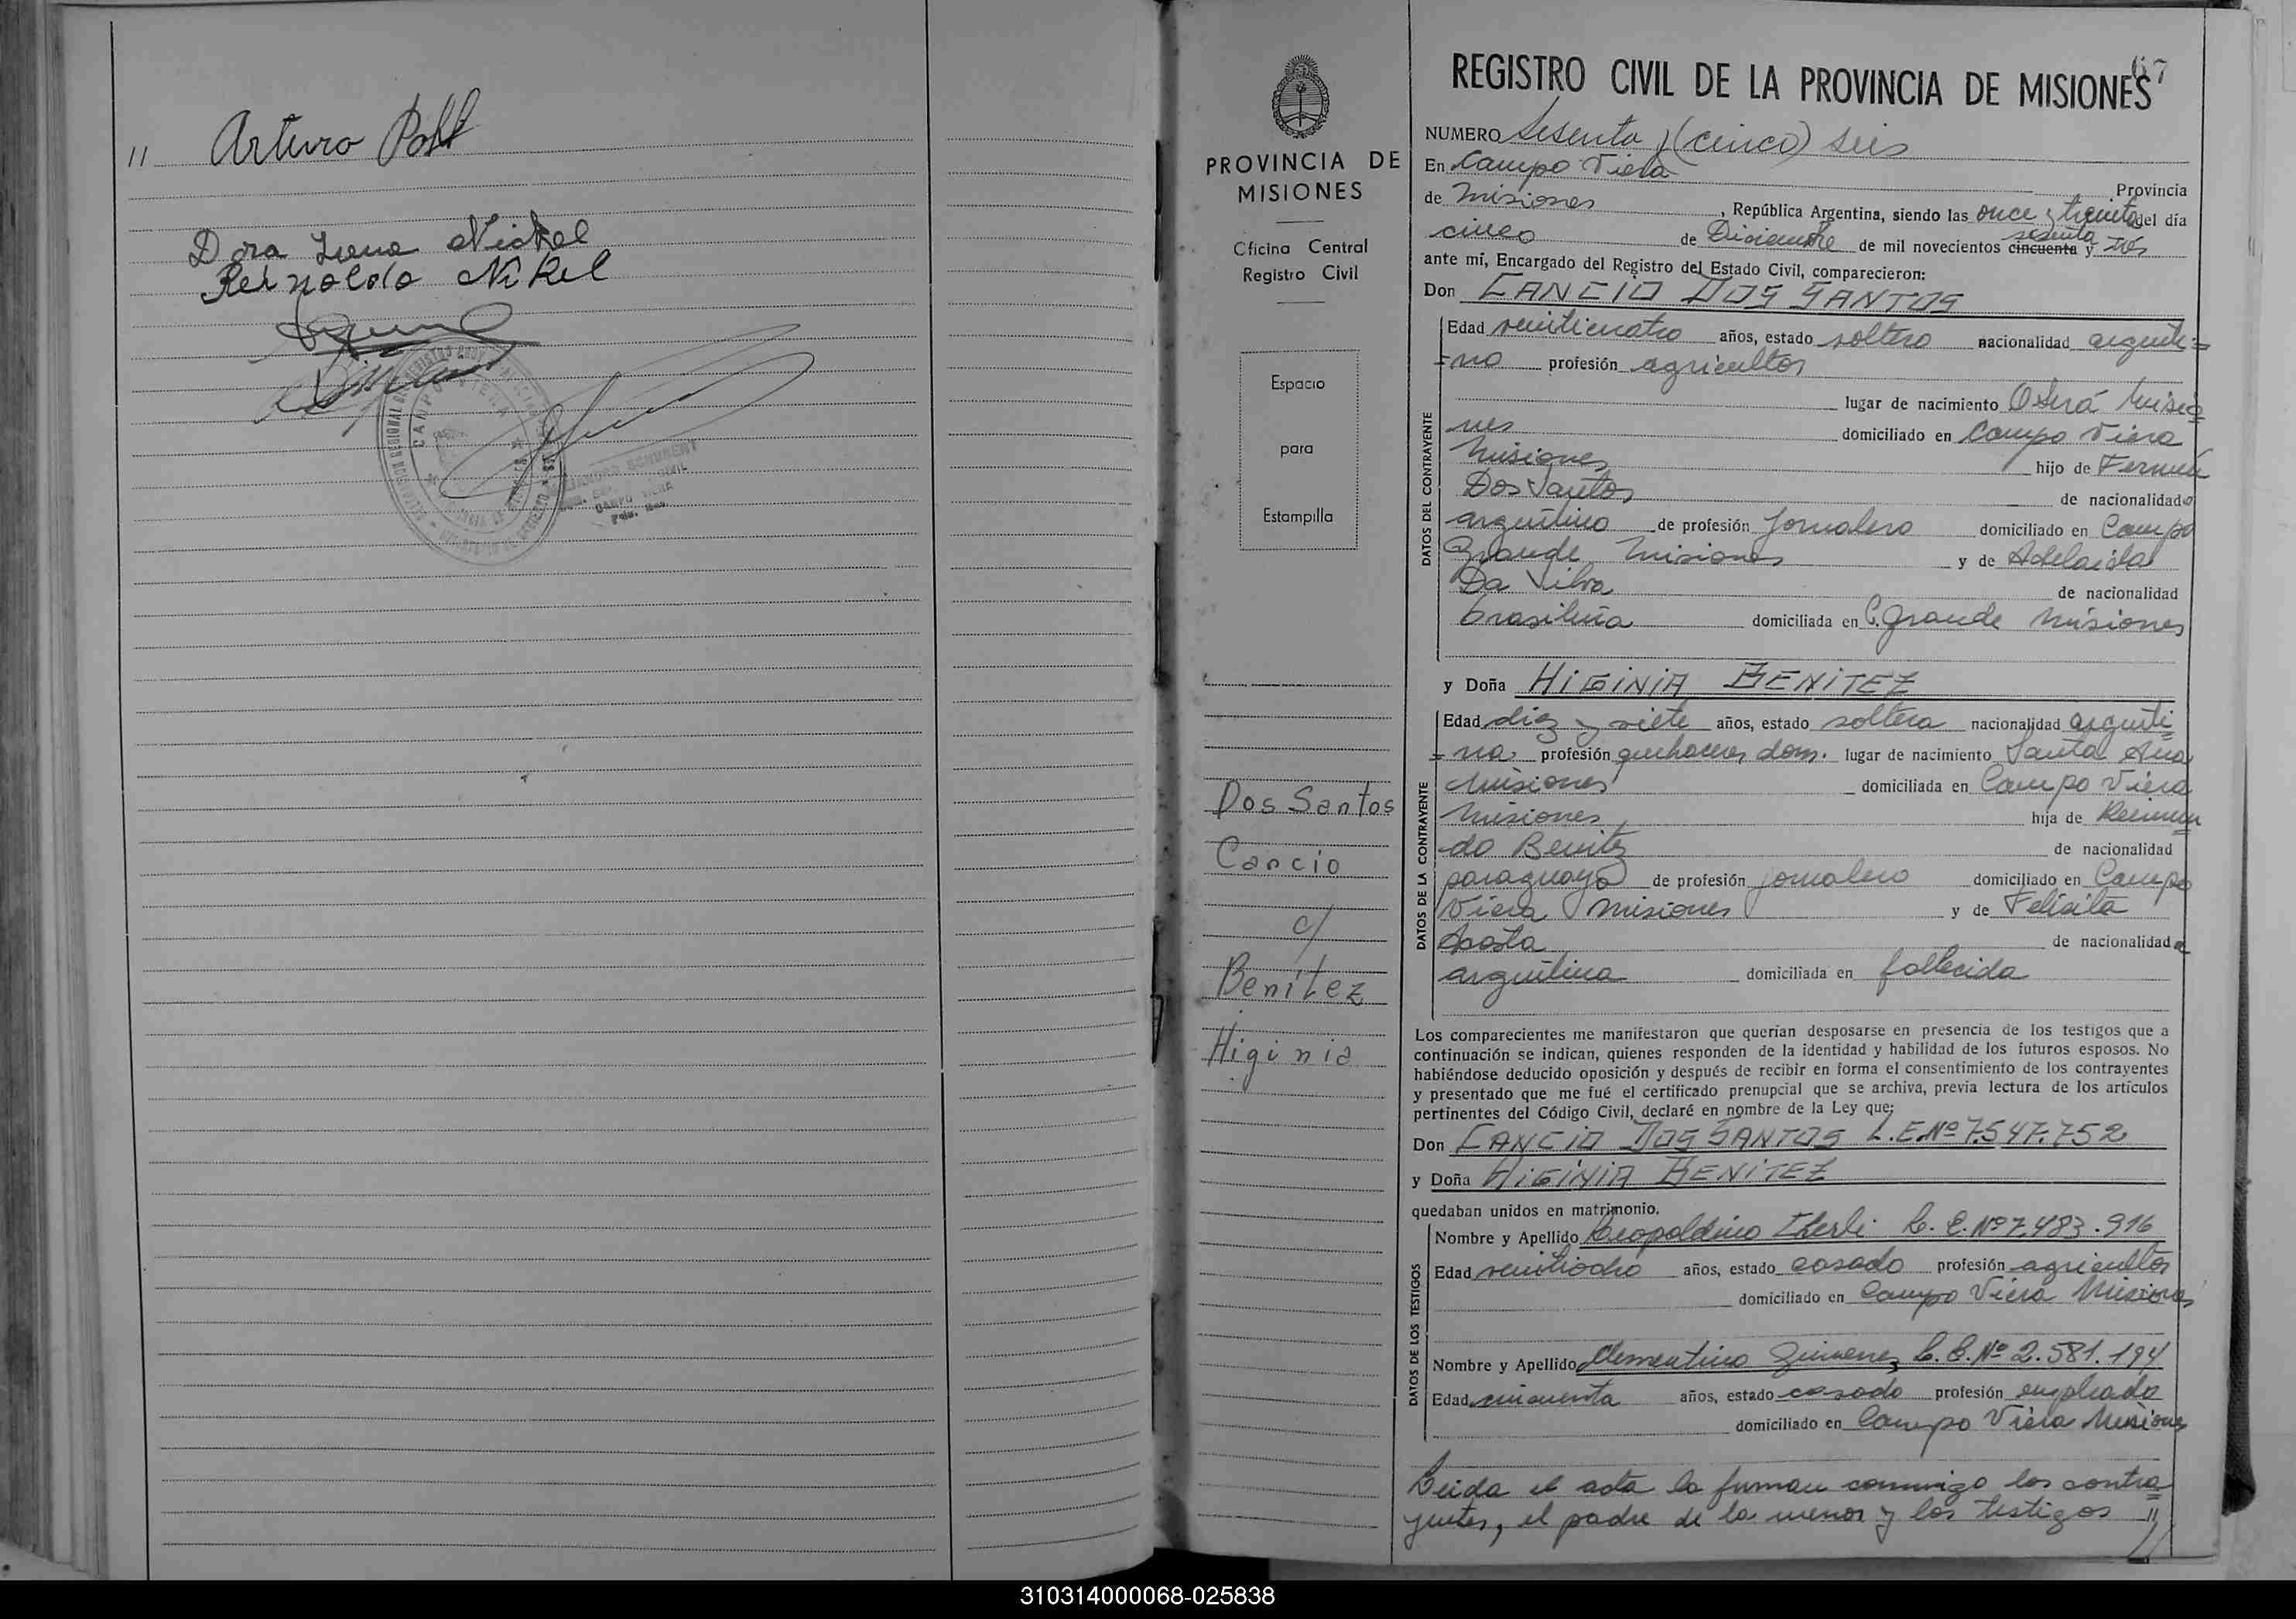 11 Arturo Pohl
Dora Irena Nickel
Reinoldo Nikel
CAMPO VIERA
67
REGISTRO CIVIL DE LA PROVINCIA DE MISIONES
PROVINCIA DE
MISIONES
Oficina Central
Registro Civil
Espacio
para
Estampilla
Dos Santos
Cancio
c/
Benítez
Higinia
NUMERO Sesenta y (cinco) seis
En Campo Viera Provincia
de Misiones, República Argentina, siendo las once y treinta del día
cinco de Diciembre de mil novecientos cincuenta sesenta y tres
ante mí, Encargado del Registro del Estado Civil, comparecieron:
Don CANCIO DOS SANTOS
DATOS DEL CONTRAYENTE
Edad veinticuatro años, estado soltero nacionalidad argenti=
=no profesión agricultor
lugar de nacimiento Oberá Misio=
nes domiciliado en Campo Viera
Misiones hijo de Fermín
Dos Santos de nacionalidad
argentino de profesión Jornalero domiciliado en Campo
Grande Misiones y de Adelaida
Da Silva de nacionalidad
brasileña domiciliada en C. Grande Misiones
y Doña HIGINIA BENITEZ
DATOS DE LA CONTRAYENTE
Edad diez y siete años, estado soltera nacionalidad argenti=
=na profesión quehaceres dom. lugar de nacimiento Santa Ana
Misiones domiciliada en Campo Viera
Misiones hija de Reimun=
do Benitez de nacionalidad
paraguayo de profesión jornalero domiciliado en Campo
Viera Misiones y de Felicita
Acosta de nacionalidad
argentina domiciliada en fallecida
Los comparecientes me manifestaron que querían desposarse en presencia de los testigos que a
continuación se indican, quienes responden de la identidad y habilidad de los futuros esposos. No
habiéndose deducido oposición y después de recibir en forma el consentimiento de los contrayentes
y presentado que me fué el certificado prenupcial que se archiva, previa lectura de los artículos
pertinentes del Código Civil, declaré en nombre de la Ley que:
Don CANCIO DOS SANTOS L.E.Nº 7.547.752
y Doña HIGINIA BENITEZ
quedaban unidos en matrimonio.
DATOS DE LOS TESTIGOS
Nombre y Apellido Leopoldino L. E. Nº 7.483.916
Edad veintiocho años, estado casado profesión agricultor
domiciliado en Campo Viera Misiones
Nombre y Apellido Clementino Gimenez L. E. Nº 2.581.194
Edad cincuenta años, estado casado profesión empleado
domiciliado en Campo Viera Misiones
Leida el acta la firman conmigo los contra=
yentes, el padre de la menor y los testigos =//
310314000068-025838